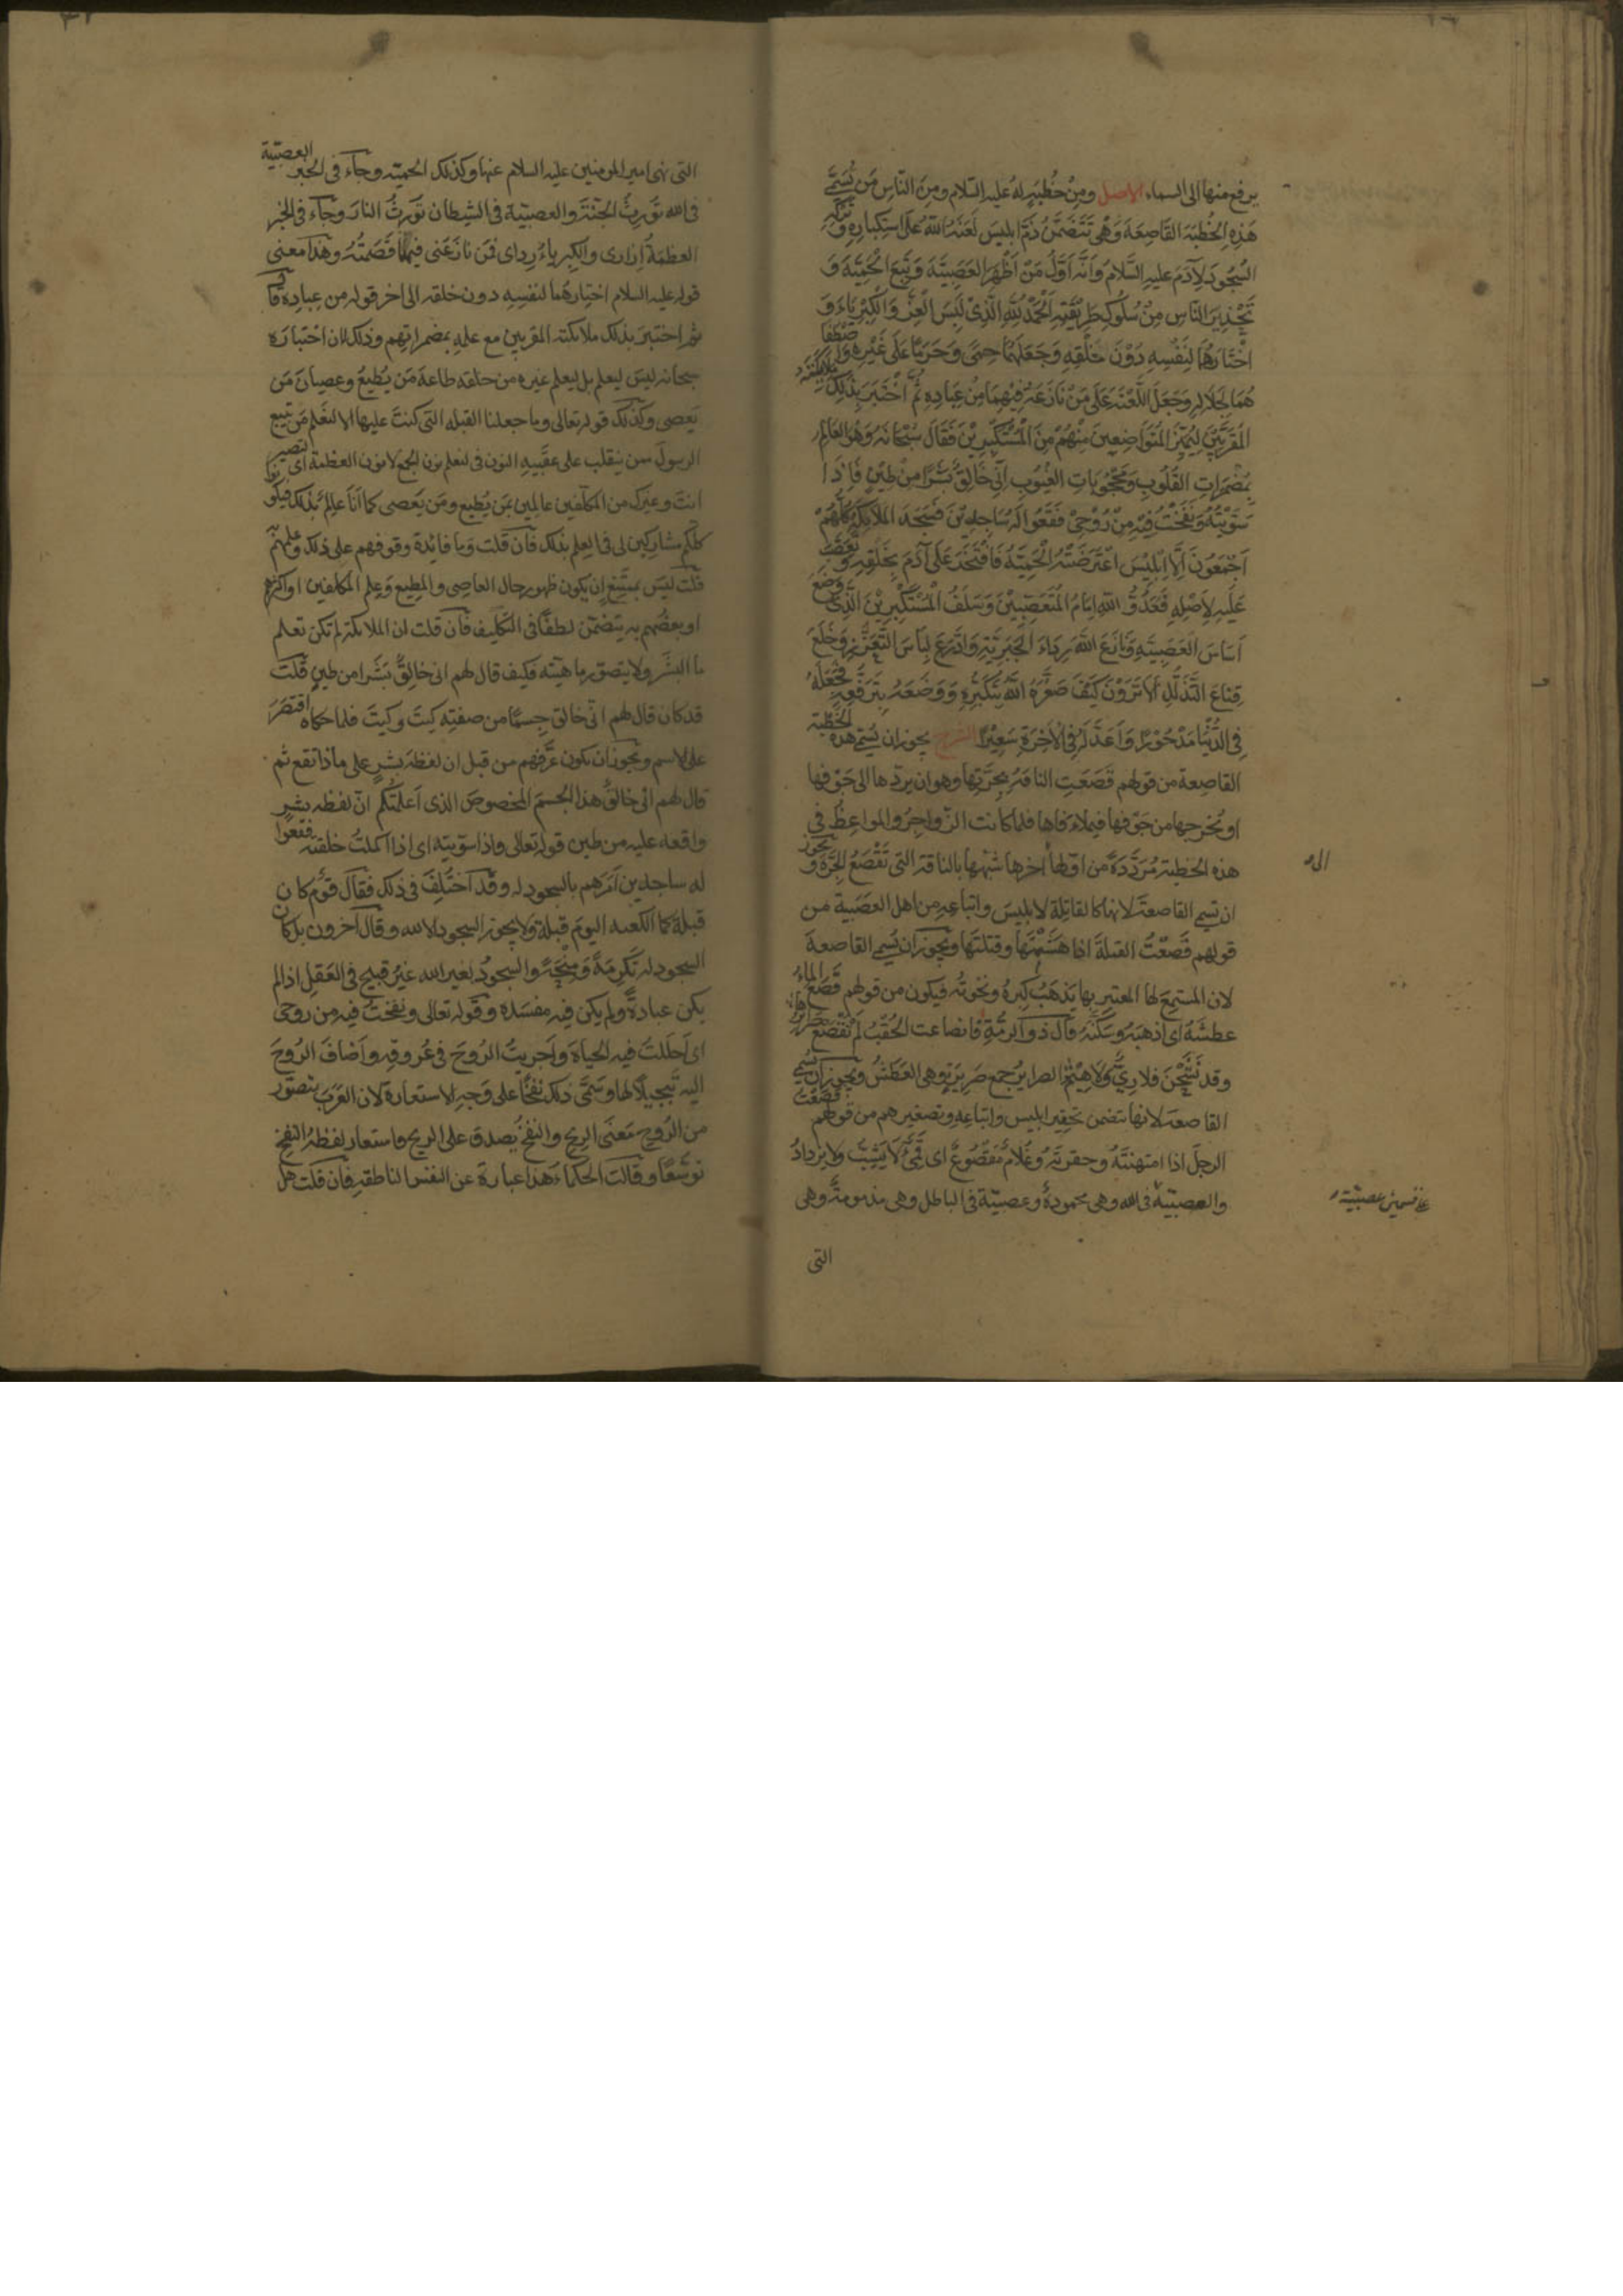 يرفع منها الى السماء الاصل ومن خُطبَةٍ لهُ عليه السّلام ومِنَ النّاسِ مَن يُسَمّى
هَذِهِ الخُطبَة القَاصِعَة وَهْىَ تَتَضَمَّنُ ذَمَّ ابليسَ لَعَنَهُ اللّه عَلَى استِكبَارِهِ وَتَرْكِهِ
السُّجُودَ لِآدَمَ عليهِ السَّلامُ وَاَنَّهُ اَوَّلُ مَنْ اَظْهَرَ العَصَبِيَّةَ وَتَبِعَ الْحَمِيَّةَ وَ
تَحْذِيرَ النّاسِ مِنْ سُلُوكِ طَرِيْقَتِهِ اَلْحَمْدُ لِلّهِ الَّذِىْ لَبِسَ الْعِزَّ وَالْكِبْرِيَاءَ وَ
اخْتَارَهُمَا لِنَفْسِهِ دُوْنَ خَلْقِهِ وَجَعَلَهُمَا حِمًى وَحَرَمًا عَلَى غَيْرِهِ وَاصْطَفَا
هُمَا لِجَلَالِهِ وَجَعَلَ اللَّعْنَةَ عَلَى مَنْ نَازَعَهُ فِيْهِمَا مِنْ عِبَادِهِ ثُمَّ اخْتَبَرَ بِذَلِكَ مَلَائِكَتَهُ
المُقَرَّبِيْنَ لِيَمِيْزَ المُتَوَاضِعِينَ مِنْهُمْ مِنَ الْمُسْتَكْبِرِيْنَ فَقَالَ سُبْحَانَهُ وَهُوَ العَالِمُ
بِمُضْمَرَاتِ القُلُوبِ وَمَحْجُوبَاتِ الغُيُوبِ اِنّى خَالِقٌ بَشَرًا مِنْ طِيْنٍ فَاِذَا
سَوَّيْتُهُ وَنَفَخْتُ فِيْهِ مِنْ رُوْحِىْ فَقَعُوا لَهُ سَاجِدِيْنَ فَسَجَدَ الْمَلَائِكَةُ كُلُّهُمْ
اَجْمَعُونَ اِلّا اِبْلِيْسَ اعْتَرَضَتْهُ الْحَمِيَّةُ فَافْتَخَرَ عَلَى آدَمَ بِخَلْقِهِ وَتَعَصَّبَ
عَلَيْهِ لِاَصْلِهِ فَعَدُوُّ اللّهِ اِمَامُ الْمُتَعَصِّبِيْنَ وَسَلَفُ الْمُسْتَكْبِرِيْنَ الَّذِىْ وَضَعَ
اَسَاسَ الْعَصَبِيَّةِ وَنَازَعَ اللّهَ رِدَاءَ الْجَبَرِيَّةِ وَادَّرَعَ لِبَاسَ التَّعَزُّزِ وَخَلَعَ
قِنَاعَ التَّذَلُّلِ اَلَا تَرَوْنَ كَيْفَ صَغَّرَهُ اللّهُ بِتَكَبُّرِهِ وَوَضَعَهُ بِتَرَفُّعِهِ فَجَعَلَهُ
فِى الدُّنْيَا مَدْحُوْرًا وَاَعَدَّ لَهُ فِى الْآخِرَةِ سَعِيْرًا الشرح يجوز ان يُسَمّى هذه الخُطبة
القاصعة من قولهم قَصَعَتِ الناقةُ بِجِرَّتِها وهو ان يردّها الى جَوْفِها
او تُخرِجها من جَوْفها فيملاء فَاها فلما كانت الزّواجِرُ والمواعِظُ فى
هذه الخطبة مُرَدَّدةً من اوّلها اخرها شبّهها بالناقة التى تَقْصَعُ الجِرَّةَ ويجوز
الى
ان تسمى القاصعة لانها كالقاتلة لابليسَ واتباعِهِ من اهل العَصَبية من
قولهم قَصَعْتُ القملةَ اذا هَشَمْتَها وقتلتَها ويجوز ان تُسمى القاصعة
لان المستمِعَ لها المعتبِر بها يَذهَبُ كِبرُهُ ونخوتُه فيكون من قولهم قَصَعَ الماءُ
عطشَهُ اى اذهبَهُ وسكّنَهُ قال ذو الرمّةِ فانصاعت الحُقْبُ لم تَقْصَعْ صَرَائِرَهَا
وقد نَشَحْنَ فلا رِىٌّ وَلَا هِيْمُ الصرايرُ جمع صَرِيْرَةٍ وهى العَطَشُ ويجوز ان تُسمى
القاصعة لانها تتضمن تحقير ابليس واتباعِهِ وتصغيرهم من قولهم قَصَعْتُ
الرجلَ اذا امتهنتَهُ وحقرتَهُ وغُلامٌ مَقْصُوعٌ اى قَمِىءٌ لَا يَشِبُّ ولا يزدادُ
والعصبيّة فى الله وهى محمودةٌ وعصبيّة فى الباطل وهى مذمومةٌ وهى
التى
التى نهى امير المومنين عليه السلام عنها وكذلك الحميّة وجاء فى الخبر العصبيّة
فى الله تُورِثُ الجَنّةَ والعصبيّة فى الشيطان تُورِثُ النارَ وجَاء فى الخبر
العظمَةُ اِزارى والكِبرياءُ رِداى فمَن نازَعَنى فيهما قَصَمتُهُ وهذا معنى
قوله عليه السلام اختارهُما لنفسِهِ دون خلقه الى اخر قوله من عِبادِه قَال
ثم اختَبرَ بذلك ملائكته المقربين مع علمِهِ بمضمراتِهم وذلك لان اختبارَه
سبحانه ليسَ ليعلم بل ليعلم غيره من خلقه طاعةَ مَن يُطيعُ وعِصيانَ مَن
يَعصى وكذلك قوله تعالى وما جعلنا القبلة التى كنتَ عليها الا لنعْلَم مَن يتبع
الرسولَ ممن ينقلب على عقَبيهِ النون فى لنعلم نون الجمع لا نون العظمة اى لتصير
انتَ وغيرك من المكلّفين عالِمِين بمَن يُطيع ومَن يَعصى كما اَنَا عالِمٌ بذلك فتكونوا
كلكم مشاركين لى فى العِلم بذلك فان قلت وما فائدة وقوفهم على ذلك وعلمِهِم
قلت ليسَ بمتَنِعٍ ان يكون ظهور حال العاصى والمطيع وَعِلم المكلفين او اكثرهم
او بعضُهُم به يتضمّن لطفًا فى التكليف فان قلت ان الملائكة لم تكن تعلم
ما البشَر ولا يتصوّر ماهيّتَه فكيف قال لهم انى خالِقٌ بَشَرا من طينٍ قلت
قد كان قال لهم انّى خالق جِسمًا من صفتِه كيتَ وكيتَ فلما حكاه اقتصَرَ
على الاسم ويجوز ان تكون عرَّفهم من قبل ان لفظة بشرٍ على ماذا تقع ثم
قال لهم انى خالقٌ هذا الجسمَ المخصوصَ الذى اَعلمتُكم انّ لفظة بشرٍ
واقعة عليه من طين قوله تعالى واذا سوّيته اى اذا اكملتُ خلقته فقَعُوا
له ساجدين اَمَرَهم بالسجود له وقد اختُلِفَ فى ذلك فقالَ قومٌ كان
قبلةً كما الكعبة اليوم قبلة ولا يجوز السجود الا لله وقال آخرون بل كان
السجود له تَكرِمَةً وَمِحْنَةً والسجودُ لغير الله غيرُ قبيح فى العَقل اذا لم
يكن عبادةً ولم يكن فيه مفسَدَة وقوله تعالى ونفختُ فيهِ من روحى
اى اَحلَلتُ فيه الحياةَ واَجريتُ الرُوحَ فى عُروقِه واَضافَ الرُوحَ
اليه تبجيلًا لها وسَمّى ذلك نفخًا على وَجهِ الاستعارة لان العَرَبَ تتصوّر
من الرُوح مَعنَى الرِيحِ والنفخُ يَصدق على الريحِ فاستعار لفظةُ النفخ
توسُّعًا وقالت الحكماء هذا عبارة عن النفس الناطقةِ فان قلت هل